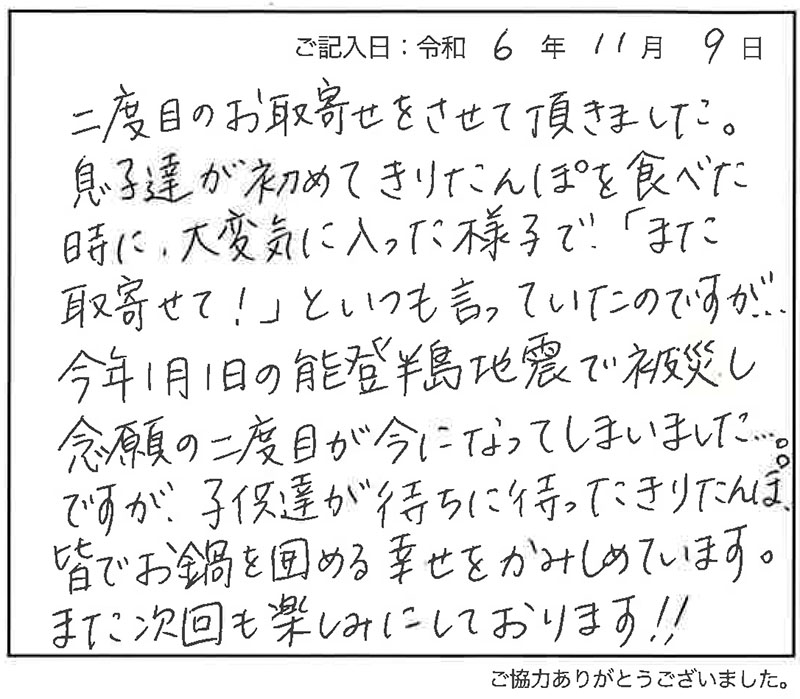 ご記入日：令和 6 年 11 月 9 日
二度目のお取寄せをさせて頂きました。
息子達が初めてきりたんぽを食べた
時に、大変気に入った様子で、「また
取寄せて！」といつも言っていたのですが…
今年1月1日の能登半島地震で被災し
念願の二度目が今になってしまいました…。
ですが、子供達が待ちに待ったきりたんぽ、
皆でお鍋を囲める幸せをかみしめています。
また次回も楽しみにしております!!
ご協力ありがとうございました。